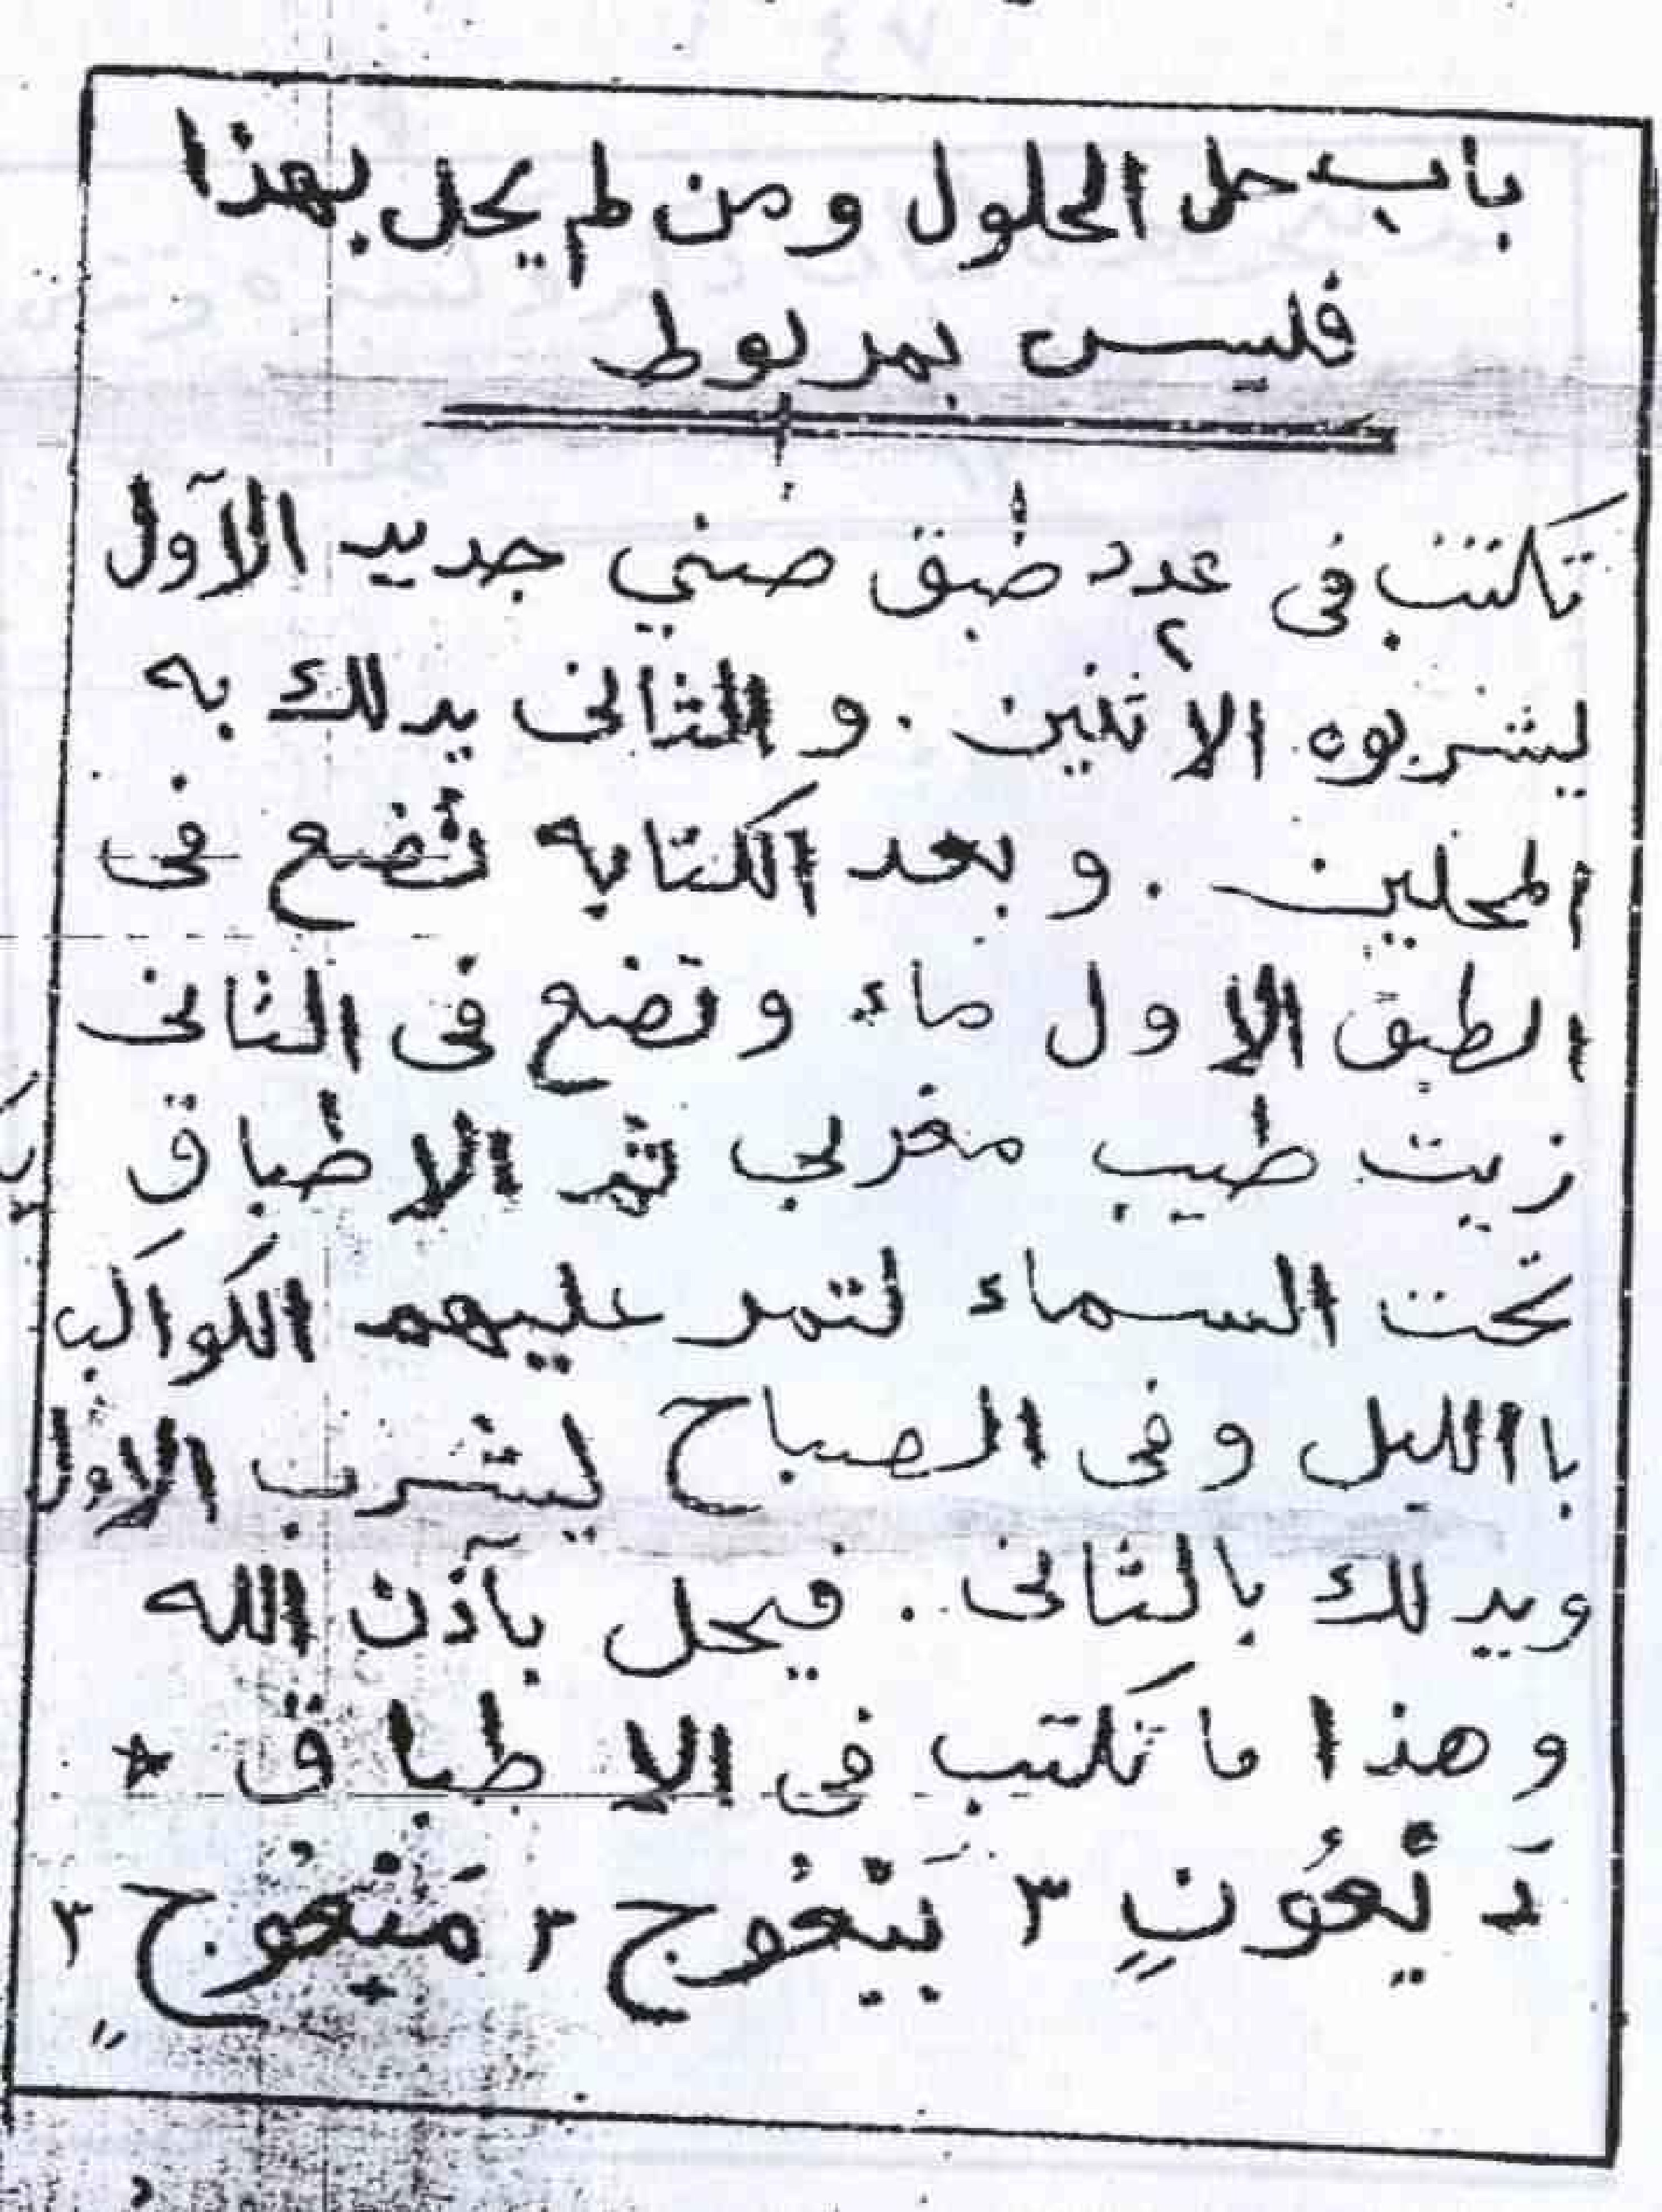 باب حل الحلول ومن لم يحل بهذا
فليس بمربوط
تكتب فى عدد ٢ طبق صني جديد الآول
يشربوه الاثنين . و الثانى يدلك به
المحلين . و بعد الكتابه تضع فى
الطبق الاول ماء وتضع فى الثانى
زيت طيب مغربى ثم الاطباق
تحت السماء لتمر عليهم الكواكب
باالليل وفى الصباح يشرب الاول
ويدلك بالثانى . فيحل بآذن الله
وهذا ما تكتب فى الاطباق *
دَ يَعُونٍ ٣ بَيْعُوج ٣ مَيْعُوجٍ ٣